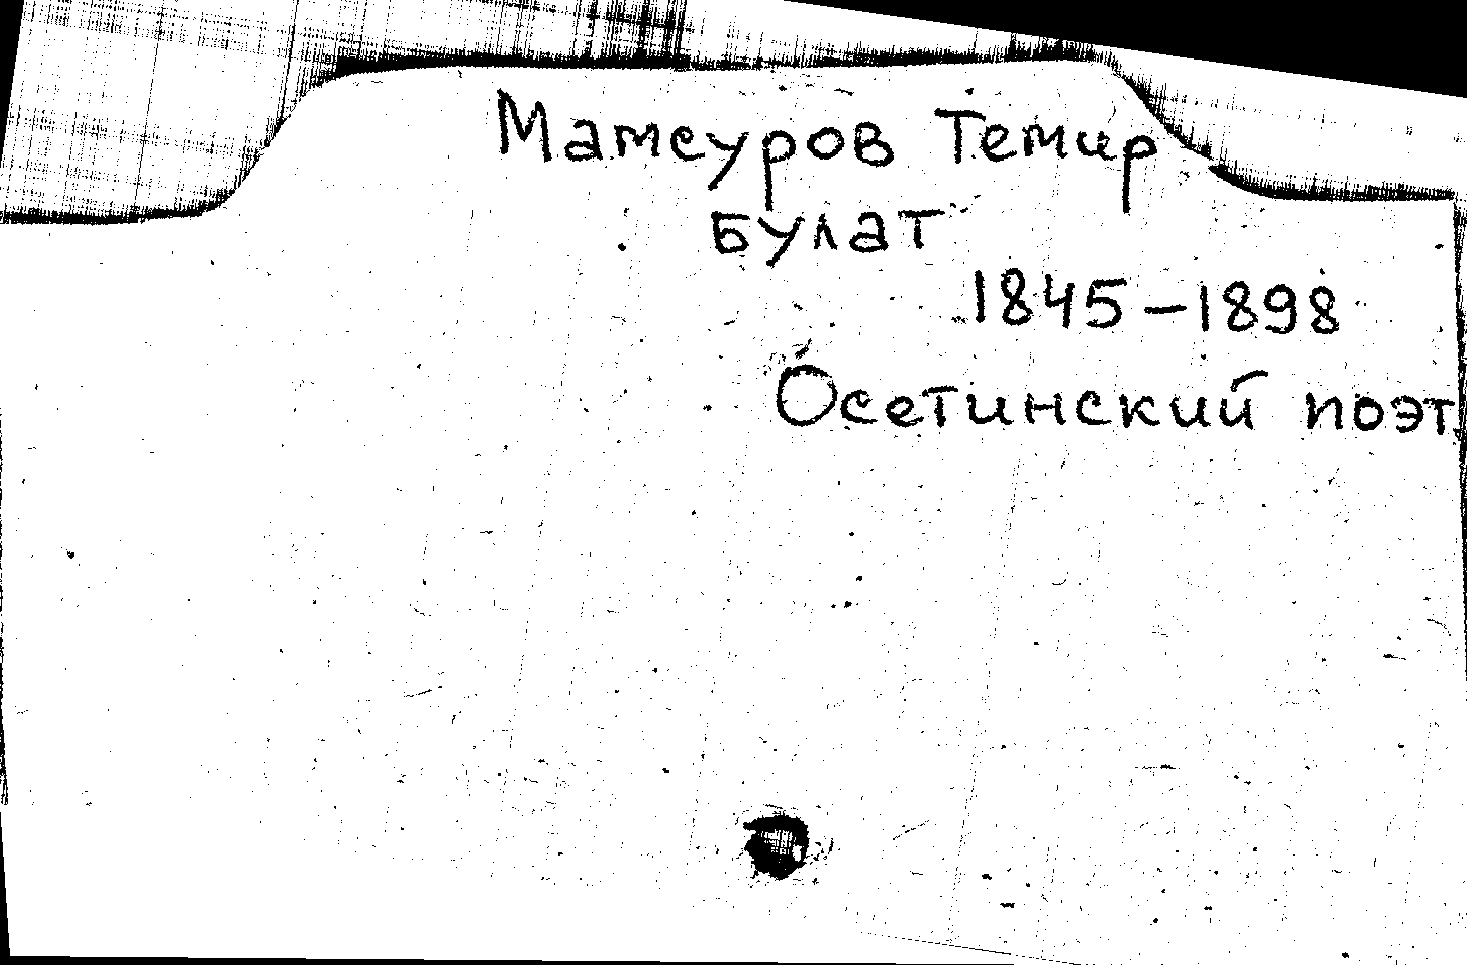 Мамсуров Темир
булат
1845-1898
Осетинский поэт.